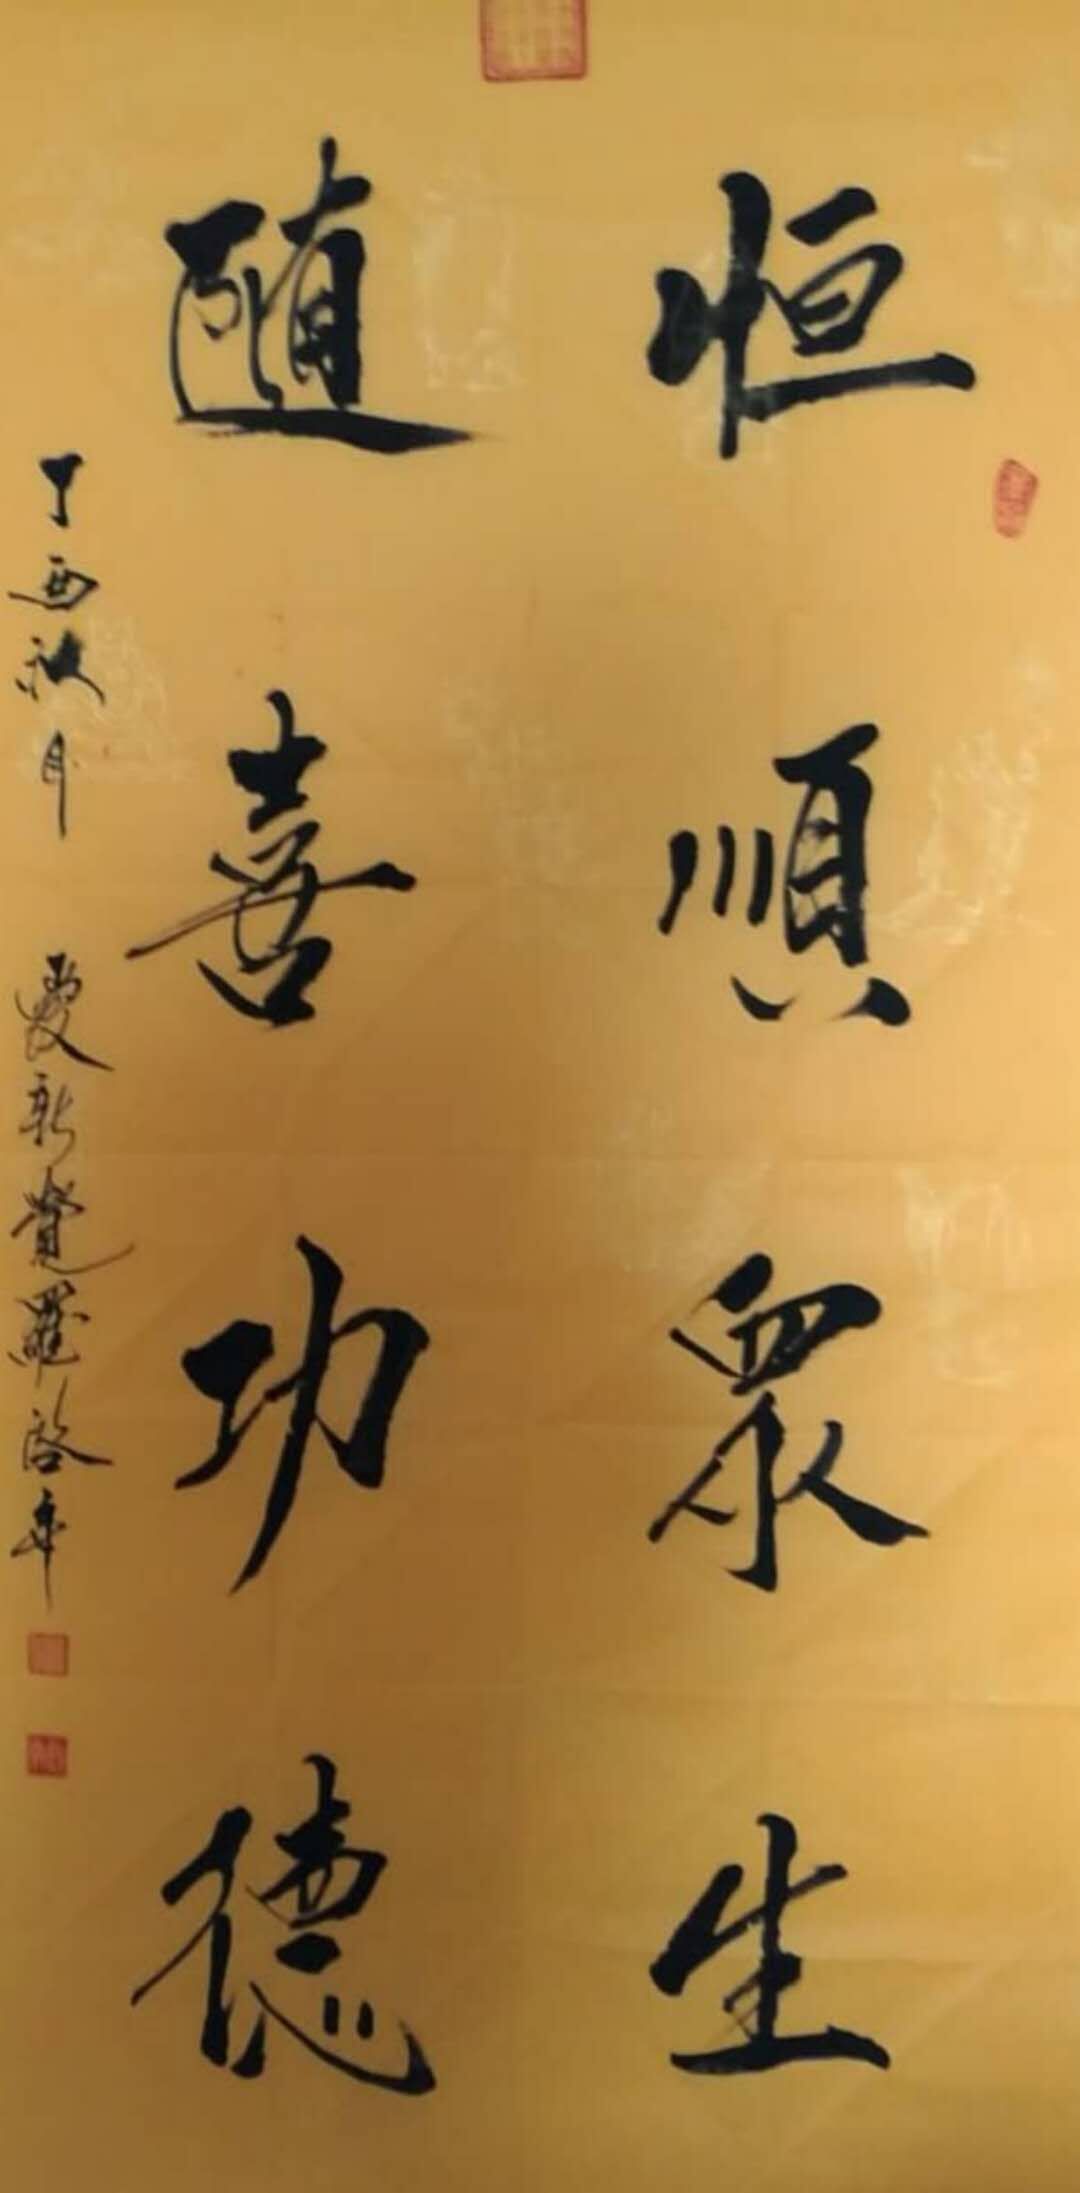 恒順眾生
隨喜功德
丁酉秋月 愛新覺羅啟年